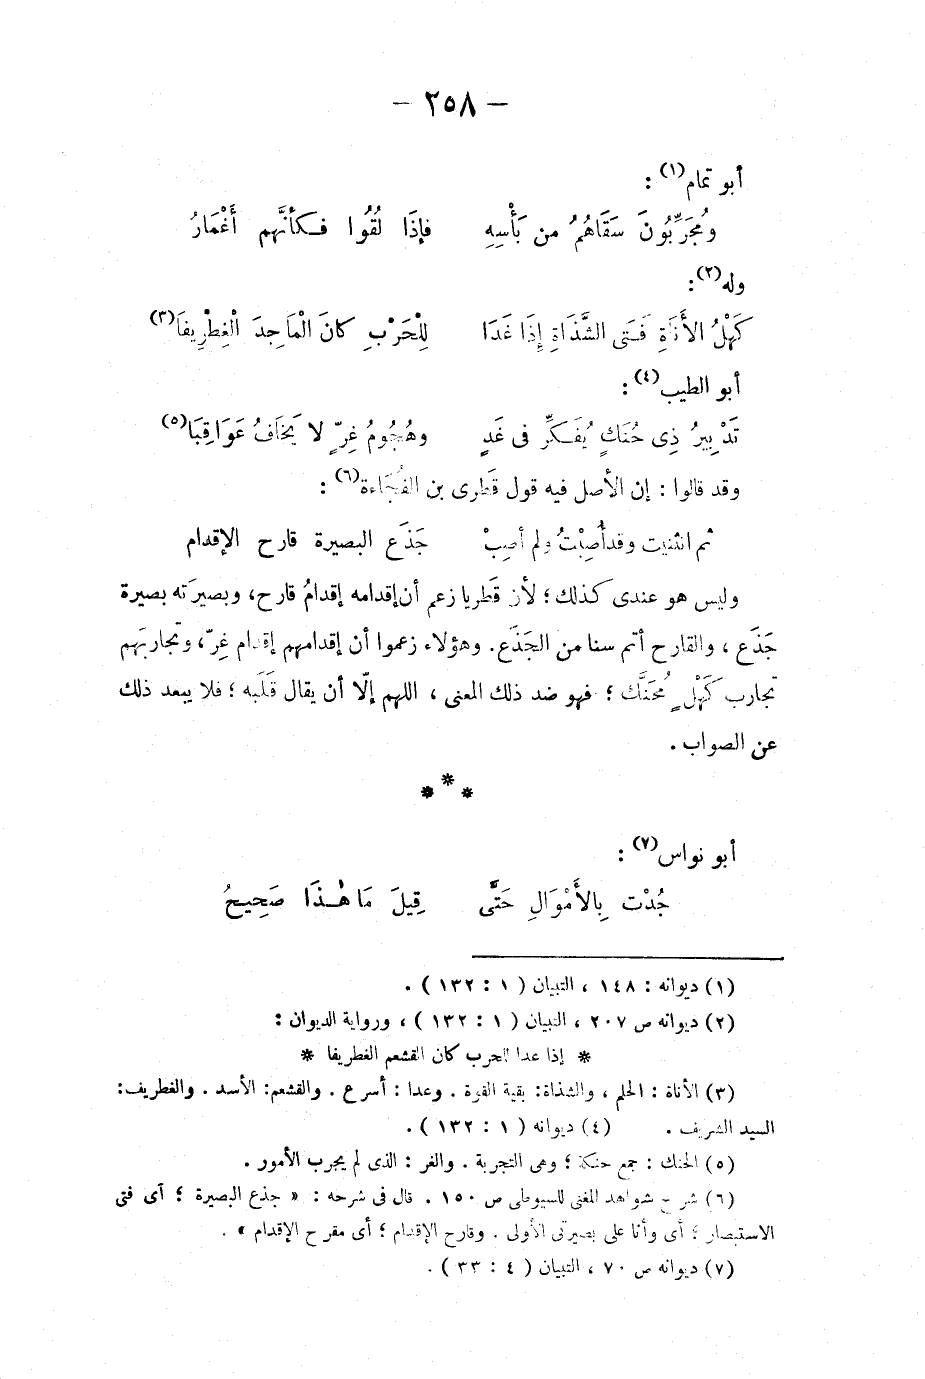 — ٢٥٨ —
أبو تمام(١) :
ومُجَرِّبُونَ سَقَاهُمُ من بَأْسِهِ فإذَا لُقُوا فـكأنَّهم أَغْمَارُ
وله(٢):
كَهْلُ الأَنَاةِ فَـتَى الشَّذَاةِ إِذَا غَدَا لِلْحَرْبِ كانَ الْمَاجِدَ الْغِطْرِيفَا(٣)
أبو الطيب(٤) :
تَدْبِيرُ ذِى حُنَكٍ يُفَـكِّرُ فى غَدٍ وهُجُومُ غِرٍّ لا يَخَافُ عَوَاقِبَا(٥)
وقد قالوا : إن الأصل فيه قول قَطرى بن الفُجَاءة(٦) :
ثم انثنيت وقد أُصِبْتُ ولم أصِبْ جَذَع البصيرة قارح الإقدام
وليس هو عندى كذلك ؛ لأن قَطريا زعم أن إقدامه إقدامُ قارح، وبصيرَته بصيرة
جَذَع ، والقارح أتم سنا من الجَذَع. وهؤلاء زعموا أن إقدامهم إقدام غِرّ، وتجاربَهم
تجارب كَهْلٍ مُحَنَّك ؛ فهو ضد ذلك المعنى ، اللهم إلّا أن يقال قَلَبه ؛ فلا يبعد ذلك
عن الصواب .
* * *
أبو نواس(٧) :
جُدْت بِالأَمْوَالِ حَتَّى قِيلَ مَا هٰـذَا صَحِيحُ
(١) ديوانه : ١٤٨ ، التبيان ( ١ : ١٣٢ ) .
(٢) ديوانه ص ٢٠٧ ، التبيان ( ١ : ١٣٢ ) ، ورواية الديوان :
* إذا عدا للحرب كان القشعم الغطريفا *
(٣) الأناة : الحلم ، والشذاة: بقية القوة . وعدا : أسرع . والقشعم: الأسد . والغطريف:
السيد الشريف . (٤) ديوانه ( ١ : ١٣٢ ) .
(٥) الحنك : جمع حنكة ؛ وهى التجربة . والغر : الذى لم يجرب الأمور .
(٦) شرح شواهد المغنى للسيوطى ص ١٥٠ . قال فى شرحه : « جذع البصيرة ؛ أى فتى
الاستبصار ؛ أى وأنا على بصيرتى الأولى . وقارح الإقدام ؛ أى مقرح الإقدام » .
(٧) ديوانه ص ٧٠ ، التبيان ( ٤ : ٣٣ ) .